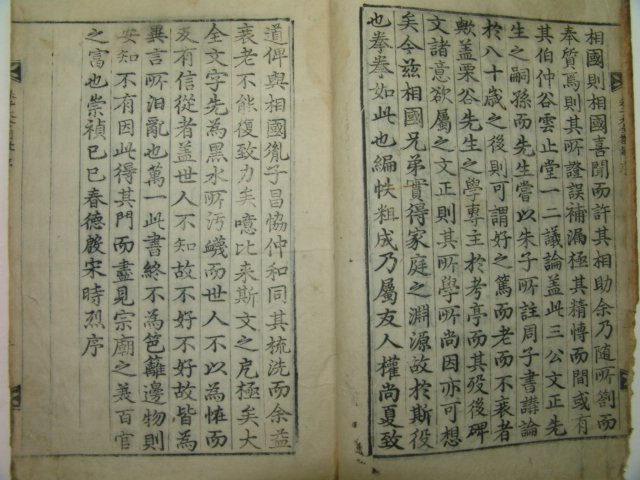 相國則相國喜聞而許其相助余乃隨所劄而
奉質焉則其所證誤補漏極其精博而間或有
其伯仲谷雲止堂一二議論蓋此三公文正先
生之嗣孫而先生嘗以朱子所註周子書講論
於八十歲之後則可謂好之篤而老而不衰者
歟蓋栗谷先生之學專主於考亭而其歿後碑
文諸意欲屬之文正則其所學所尚因亦可想
矣今玆相國兄弟實得家庭之淵源故於斯役
也拳拳如此也編帙粗成乃屬友人權尚夏致
道俾與相國胤子昌協仲和同其梳洗而余益
衰老不能復致力矣噫比来斯文之厄極矣大
全文字先為黑水所汚衊而世人不以為恠而
友有信從者蓋世人不知故不好不好故皆為
異言所汩亂也萬一此書終不為笆籬邊物則
安知不有因此得其門而盡見宗廟之美百官
之富也崇禎己巳春德殷宋時烈序